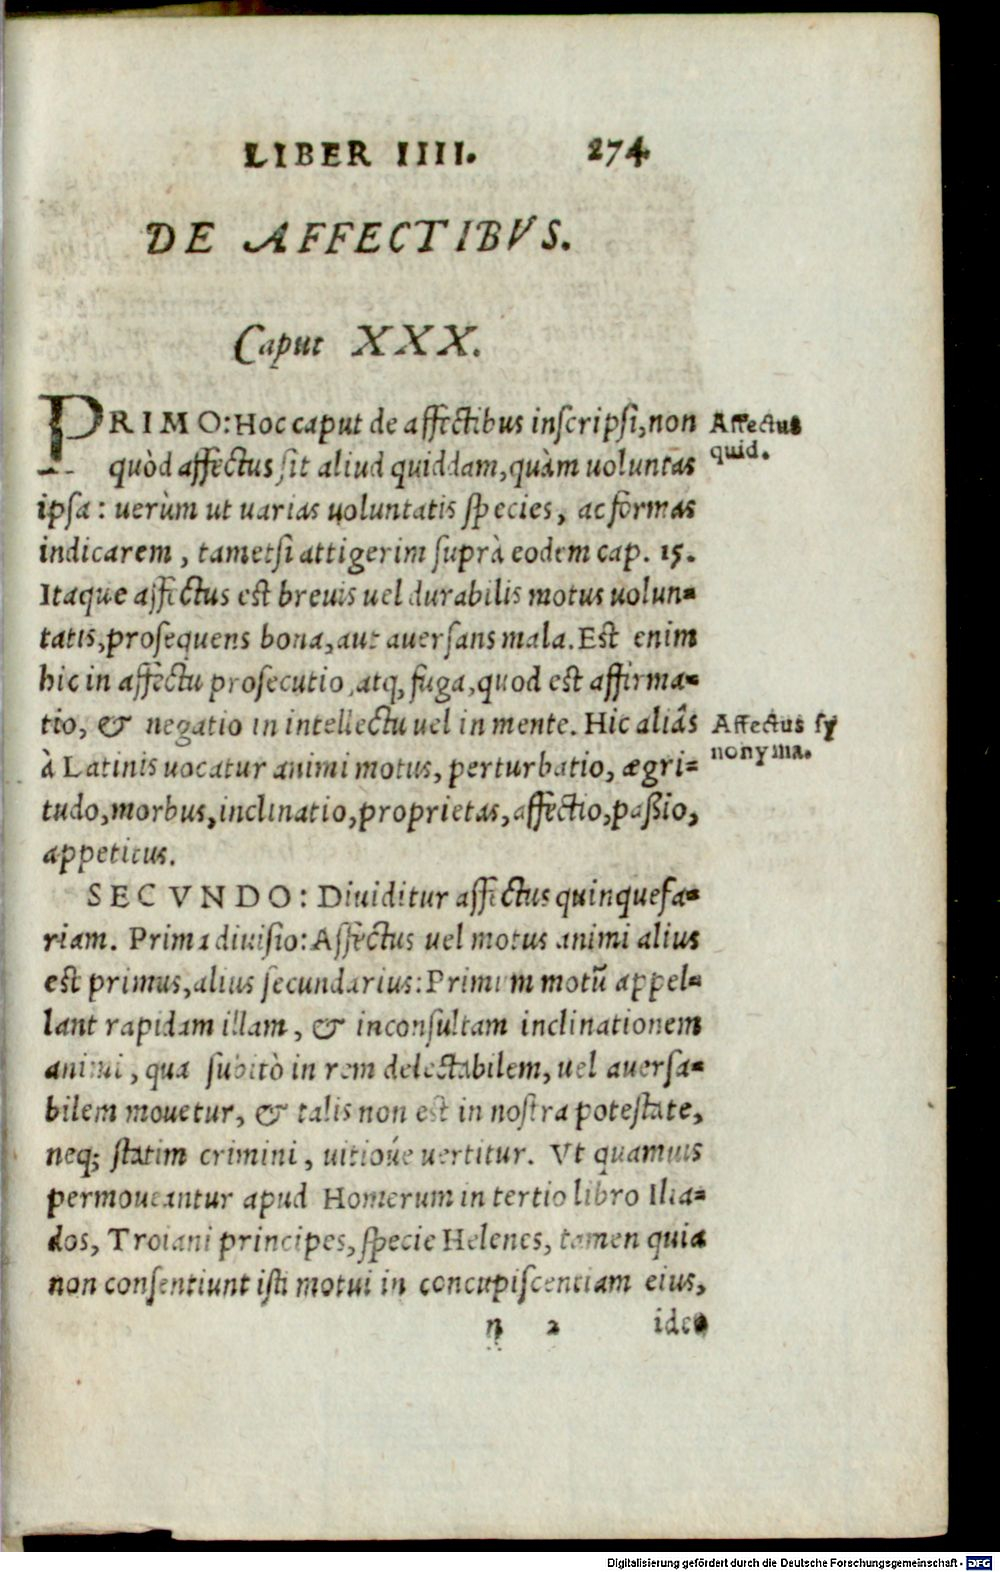 LIBER IIII. 274
DE AFFECTIBVS.
Caput XXX.
PRIMO: Hoc caput de affectibus inscripsi, non
Affectus
quid.
quòd affectus sit aliud quiddam, quàm uoluntas
ipsa: uerùm ut uarias uoluntatis species, ac formas
indicarem, tametsi attigerim suprà eodem cap. 15.
Itaque affectus est breuis uel durabilis motus uolun-
tatis, prosequens bona, aut auersans mala. Est enim
hic in affectu prosecutio, atq; fuga, quod est affirma-
tio, & negatio in intellectu uel in mente. Hic aliâs
Affectus sy
nonyma.
à Latinis uocatur animi motus, perturbatio, ægri-
tudo, morbus, inclinatio, proprietas, affectio, paßio,
appetitus.
SECVNDO: Diuiditur affectus quinquefa-
riam. Prima diuisio: Affectus uel motus animi alius
est primus, alius secundarius: Primum motū appel-
lant rapidam illam, & inconsultam inclinationem
animi, qua subitò in rem delectabilem, uel auersa-
bilem mouetur, & talis non est in nostra potestate,
neq; statim crimini, uitioúe uertitur. Vt quamuis
permoueantur apud Homerum in tertio libro Ilia-
dos, Troiani principes, specie Helenes, tamen quia
non consentiunt isti motui in concupiscentiam eius,
n 2 ideo
Digitalisierung gefördert durch die Deutsche Forschungsgemeinschaft - DFG